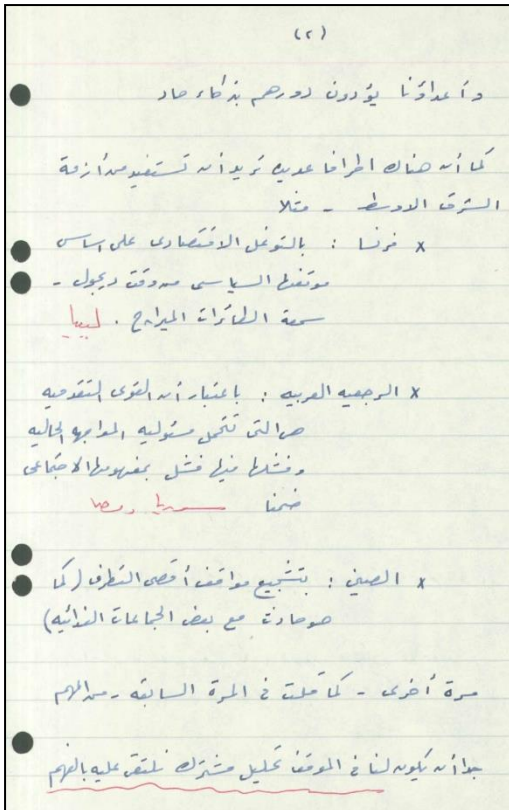 (٢)
وأعداؤنا يؤدون دورهم بذكاء حاد
كما أن هناك اطرافا عديده تريد أن تستفيد من أزمة
الشرق الاوسط - مثلا
× فرنسا : بالتوغل الاقتصادى على اساس
موقفها السياسى من وقت ديجول -
سمعة الطائرات الميراج . ليبيا
× الرجعيه العربيه : باعتبار أن القوى التقدميه
هى التى تتحمل مسئوليه المواجهه الحاليه
وفشلها فيها فشل بمفهومها الاجتماعى
ضمنا سوريا ومصر
× الصين : بتشجيع مواقف أقصى التطرف (كما
هو حادث مع بعض الجماعات الفدائيه)
مرة أخرى - كما قلت فى المرة السابقه - من المهم
جدا أن يكون لنا فى الموقف تحليل مشترك نلتقى عليه بالفهم